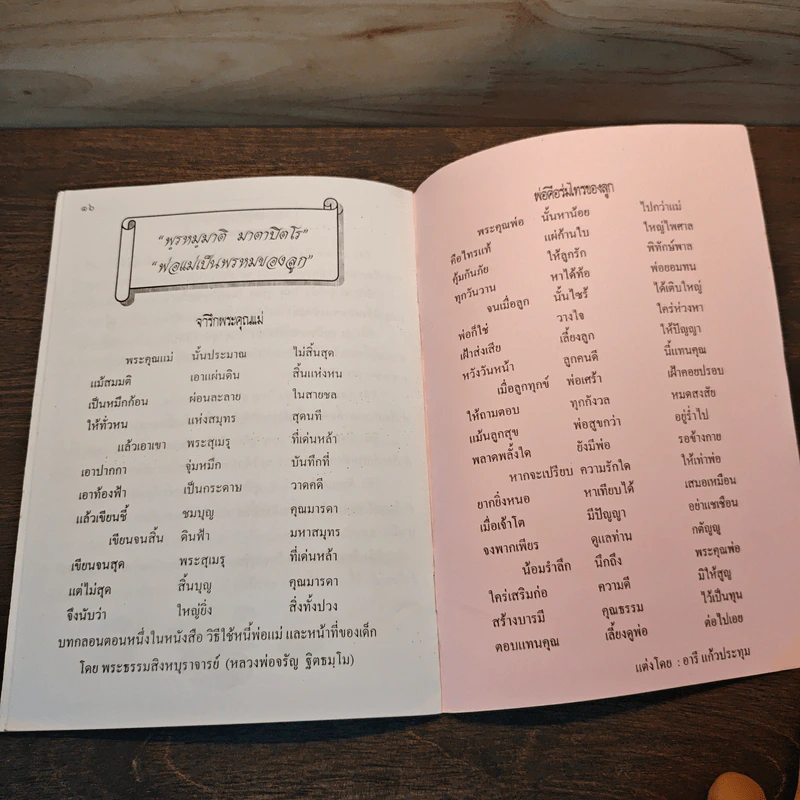 ๑๖
“พฺรหฺมาติ มาตาปิตโร”
“พ่อแม่เป็นพรหมของลูก”
จารึกพระคุณแม่
พระคุณแม่ นั้นประมาณ ไม่สิ้นสุด
แม้สมมติ เอาแผ่นดิน สิ้นแห่งหน
เป็นหมึกก้อน ผ่อนละลาย ในสายชล
ให้ทั่วหน แห่งสมุทร สุดนที
แล้วเอาเขา พระสุเมรุ ที่เด่นหล้า
เอาปากกา จุ่มหมึก บันทึกที่
เอาท้องฟ้า เป็นกระดาษ วาดคดี
แล้วเขียนชี้ ชมบุญ คุณมารดา
เขียนจนสิ้น ดินฟ้า มหาสมุทร
เขียนจนสุด พระสุเมรุ ที่เด่นหล้า
แต่ไม่สุด สิ้นบุญ คุณมารดา
จึงนับว่า ใหญ่ยิ่ง สิ่งทั้งปวง
บทกลอนตอนหนึ่งในหนังสือ วิธีใช้หนี้พ่อแม่ และหน้าที่ของเด็ก
โดย พระธรรมสิงหบุราจารย์ (หลวงพ่อจรัญ ฐิตธมฺโม)
พ่อคือร่มไทรของลูก
พระคุณพ่อ นั้นหาน้อย ไปกว่าแม่
คือไทรแท้ แผ่ก้านใบ ใหญ่ไพศาล
คุ้มกันภัย ให้ลูกรัก พิทักษ์พาล
ทุกวันวาน หาได้ท้อ พ่อยอมทน
จนเมื่อลูก นั้นไซร้ ได้เติบใหญ่
พ่อก็ใช่ วางใจ ใคร่ห่วงหา
เฝ้าส่งเสีย เลี้ยงลูก ให้ปัญญา
หวังวันหน้า ลูกคนดี นี้แทนคุณ
เมื่อลูกทุกข์ พ่อเศร้า เฝ้าคอยปรอบ
ให้ถามตอบ ทุกกังวล หมดสงสัย
แม้นลูกสุข พ่อสุขกว่า อยู่ร่ำไป
พลาดพลั้งใด ยังมีพ่อ รอข้างกาย
หากจะเปรียบ ความรักใด ให้เท่าพ่อ
ยากยิ่งหนอ หาเทียบได้ เสมอเหมือน
เมื่อเจ้าโต มีปัญญา อย่าแชเชือน
จงพากเพียร ดูแลท่าน กตัญญู
น้อมรำลึก นึกถึง พระคุณพ่อ
ใคร่เสริมก่อ ความดี มิให้สูญ
สร้างบารมี คุณธรรม ไว้เป็นทุน
ตอบแทนคุณ เลี้ยงดูพ่อ ต่อไปเอย
แต่งโดย : อารี แก้วประทุม